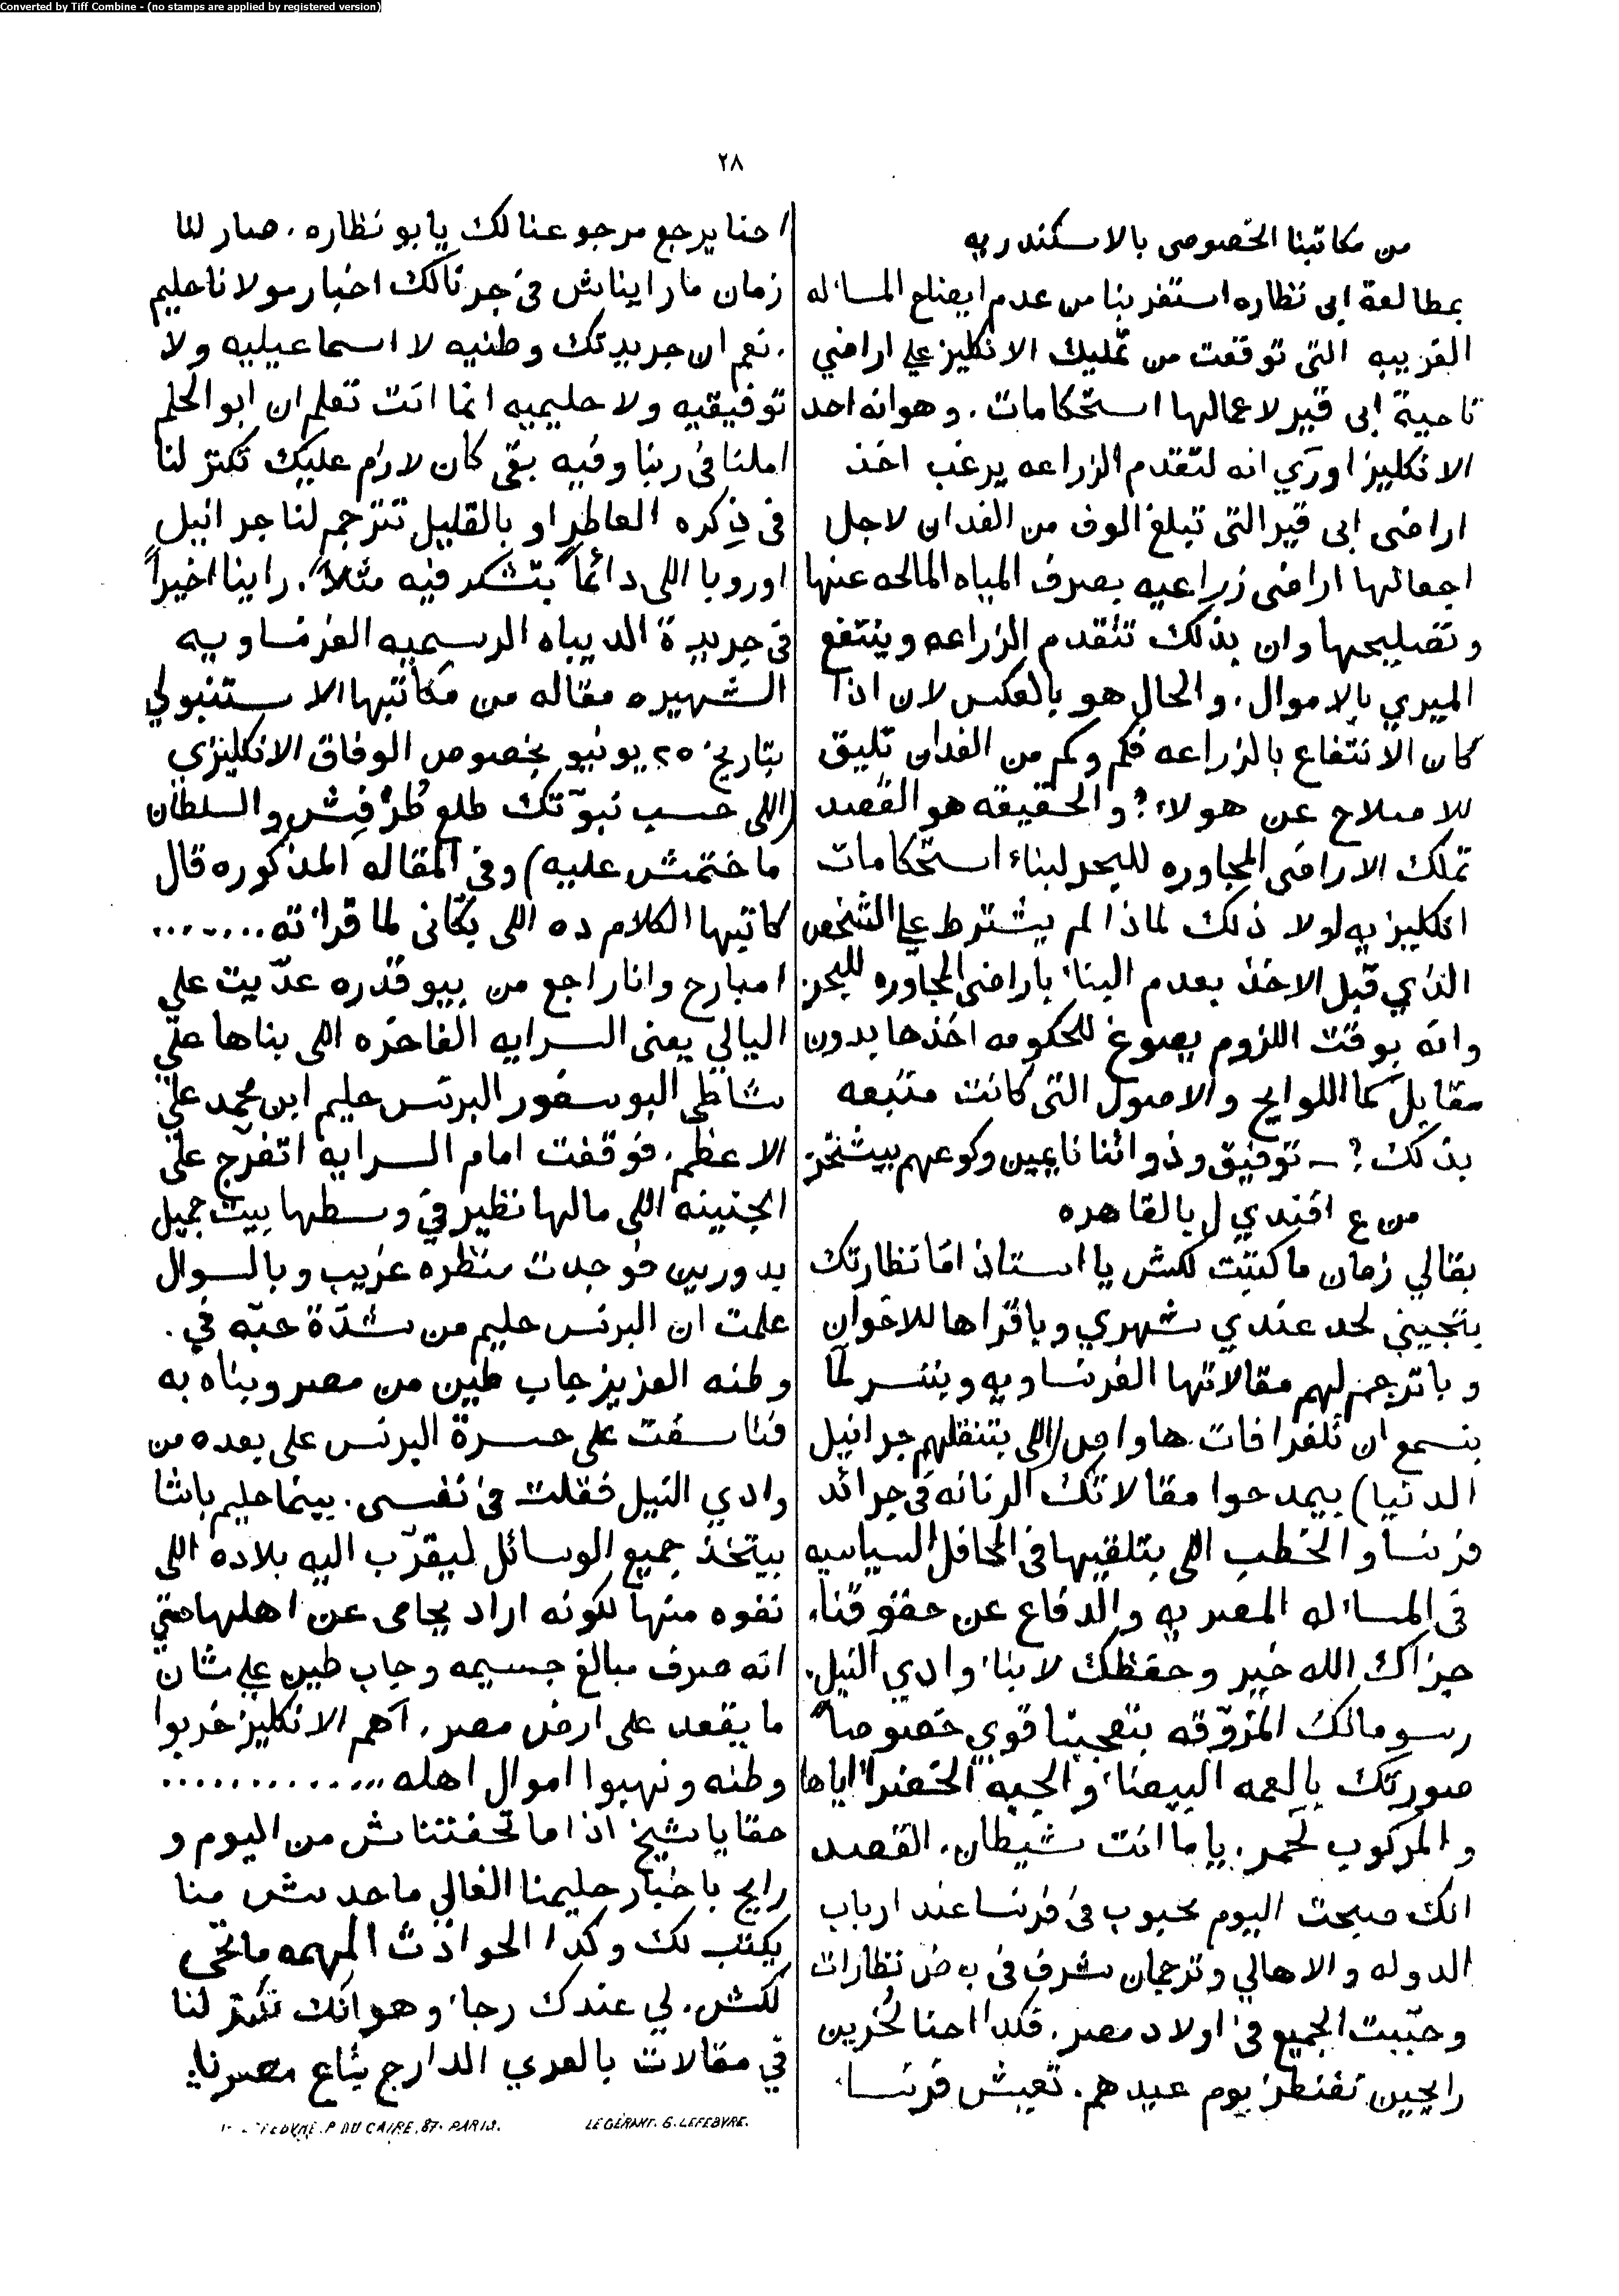 Converted by Tiff Combine - (no stamps are applied by registered version)
٢٨
من مكاتبنا الخصوصى بالاسكندريه
بمطالعة ابى نظاره استغربنا من عدم ايضاح المسائله
الغريبه التى توقعت من تمليك الانكليز علي اراضي
ناحية ابى قير لاعمالها استحكامات. وهو انه احد
الانكليز اورَي انه لتقدم الزراعه يرغب اخذ
اراضى ابى قير التى تبلغ الوف من الفدان لاجل
اجعالها اراضى زراعيه بصرف المياه المالحه عنها
وتصليحها وان بذلك تتقدم الزراعه وينتفع
الميري بالاموال. والحال هو بالعكس لان اذا
كان الانتفاع بالزراعه فكم وكم من الفدان تليق
للاصلاح عن هولاء؟ والحقيقه هو القصد
تملك الاراضى المجاوره للبحر لبناء استحكامات
انكليزيه لولا ذلك لماذا لم يشترط علي الشخص
الذي قبل الاخذ بعدم البناء باراضى المجاوره للبحر
وانه بوقت اللزوم يصوغ للحكومه اخذها بدون
مقابل كما اللوايح والاصول التى كانت متبعه
بذلك؟ – توفيق وذواتنا نايمين وكوعهم بيشخر
من ع افندي ل بالقاهره
بقالي زمان ما كتبت لكش يا استاذ امّا نظارتك
بتجيني لحد عندي شهري وباقراها للاخوان
وباترجم لهم مقالاتها الفرنساويه وبننسر لمّا
بنسمع ان تلغرافات هاواس (اللى بتنقلهم جرانيل
الدنيا) بيمدحوا مقالاتك الرنانه فى جرائد
فرنسا والخطب اللى بتلقيها فى المحافل السياسيه
فى المسائله المصريه والدفاع عن حقوقنا.
جزاك الله خير وحفظك لابناء وادي النيل.
رسوماتك المزوّقه بتعجبنا قوي خصوصاً
صورتك بالعمه البيضاء والجبه الخضرا اياها
والمركوب لحمر. ياما انت شيطان. القصد
انك صبحت اليوم محبوب فى فرنسا عند ارباب
الدوله والاهالي وترجمان شرف فى بعض نظارات
وحبّبت الجميع فى اولاد مصر. فكدا احنا لخرين
رايحين نفنطز يوم عيدهم. تعيش فرنسا.
احنا يرجع مرجوعنا لك يا بو نظاره. صار لنا
زمان ما رايناش فى جرنالك اخبار مولانا حليم
.نعم ان جريدتك وطنيه لا اسماعيليه ولا
توفيقيه ولا حليميه انما انت تعلم ان ابو الحلم
املنا فى ربنا وفيه بقى كان لازم عليك تكتر لنا
فى ذكره العاطر او بالقليل تترجم لنا جرانيل
اوروبا اللى دائماً بتشكر فيه مثلاً. راينا اخيراً
فى جريدة الديباه الرسميه الفرنساويه
الشهيره مقاله من مكاتبها الاستنبولي
بتاريخ ٢٥ يونيو بخصوص الوفاق الانكليزي
(اللى حسب نبوّتك طلع طز فِش والسلطان
ما ختمش عليه) وفى المقاله المذكوره قال
كاتبها الكلام ده اللى بكّانى لما قرائته........
امبارح وانا راجع من بيوقدره عدّيت على
اليالي يعنى السرايه الفاخره اللى بناها على
شاطى البوسفور البرنس حليم ابن محمد علي
الاعظم. فوقفت امام السرايه اتفرّج على
الجنينه اللى مالها نظير في وسطها بيت جميل
بدورين فوجدت منظره غريب وبالسوال
علمت ان البرنس حليم من شدّة حبّه في.
وطنه العزيز جاب طين من مصر وبناه به
فتاسفت على حسرة البرنس على بعده من
وادي النيل فقلت فى نفسى. بينما حليم باشا
بيتخذ جميع الوسائل ليقرّب اليه بلاده اللى
نفوه منها لكونه اراد يحامى عن اهلها حتى
انه صرف مبالغ جسيمه وجاب طين على شان
ما يقعد على ارض مصر. آهم الانكليز خربوا
وطنه ونهبوا اموال اهله...............
حقا يا شيخ اذا ما تحفتناش من اليوم و
رايح باخبار حليمنا الغالي ما حدش منا
يكتب لك وكدا الحوادث المهمه ما تجى
لكش. لي عندك رجاء وهو انك تكتر لنا
في مقالات بالعربي الدارج بتاع مصرنا.
LE GÉRANT. G. LEFEBVRE.
LEFEBVRE. P DU CAIRE, 87. PARIS.